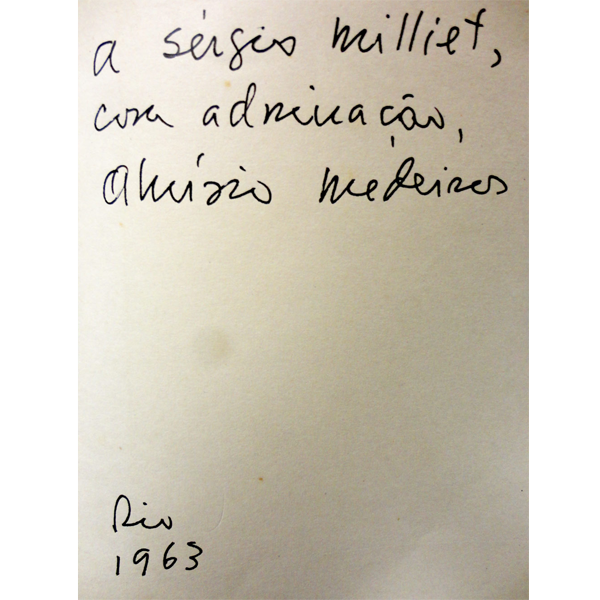 a sérgio milliet,
com admiração,
Aluísio medeiros
Rio
1963